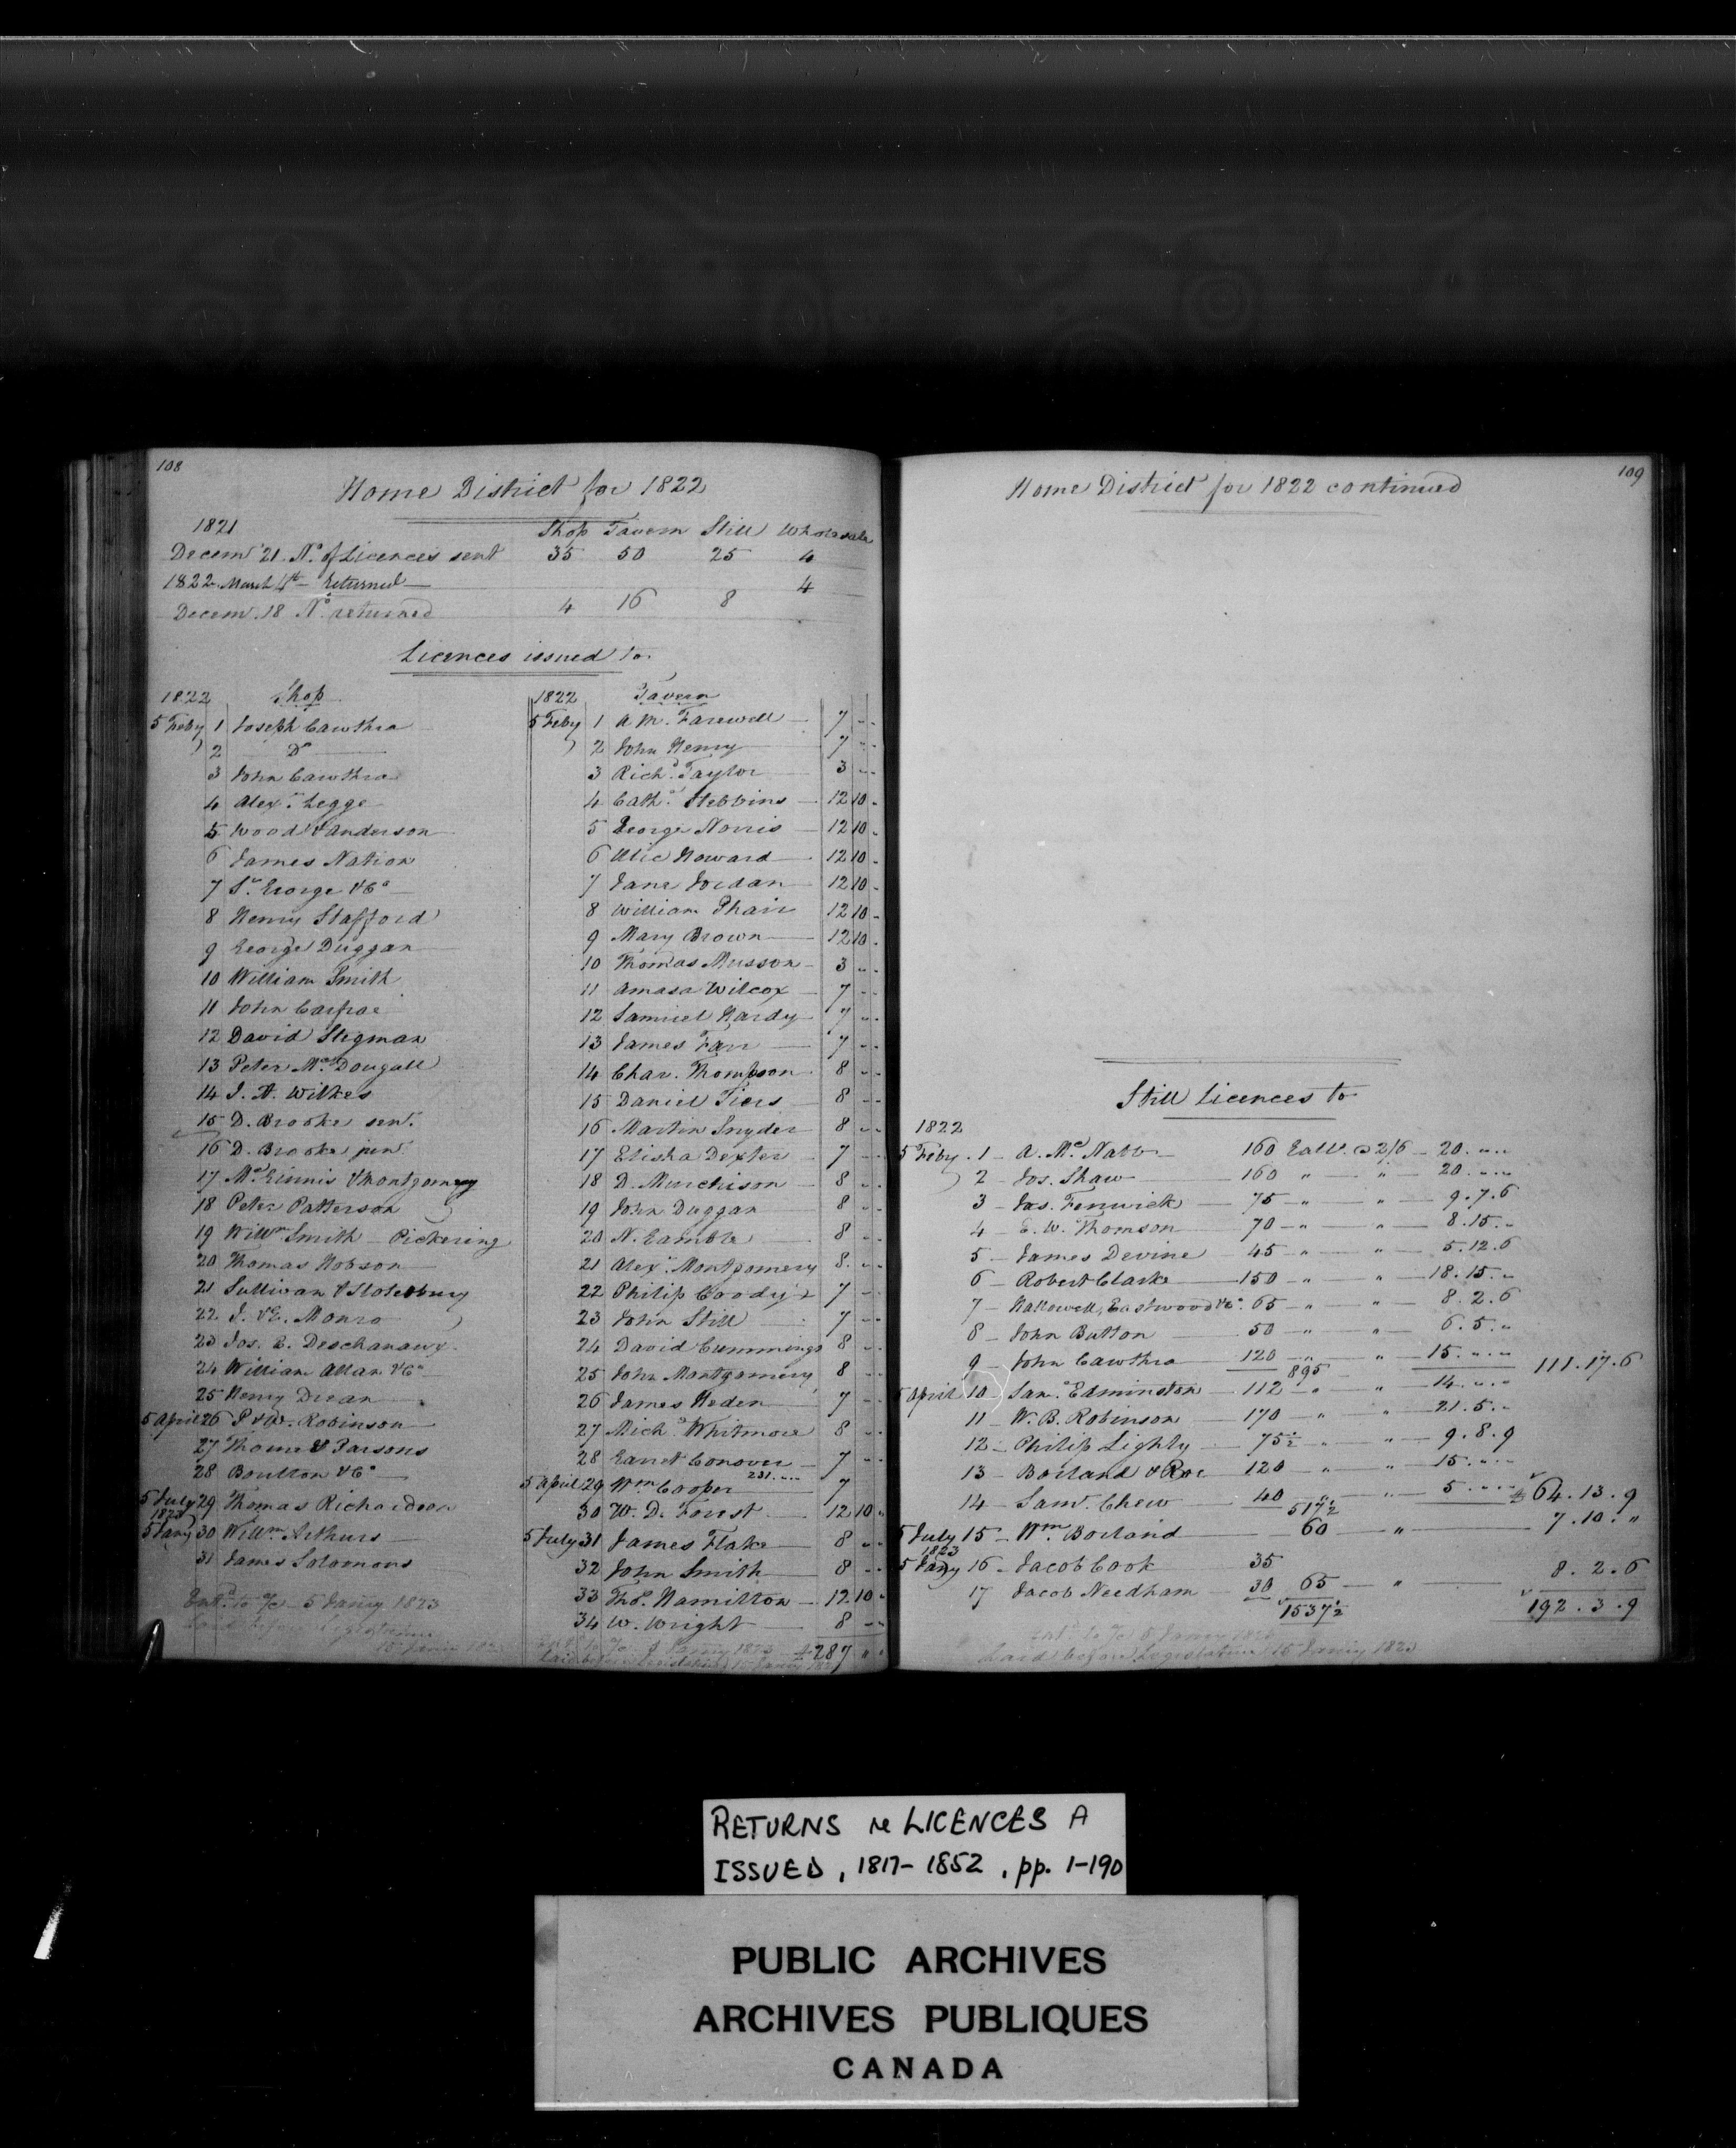 108
Home District for 1822
1821
Shop Tavern Still Wholesale
Decemr 21. No. of Licences sent 35 50 25 4
1822 March 4th returned 4
Decem. 18 No. returned 4 16 8
Licences issued to
1822 Shop
5 Feby 1 Joseph Cawthra
2 Do
3 John Cawthra
4 Alexr. Legge
5 Wood & Anderson
6 James Nation
7 St. George & Co
8 Henry Stafford
9 George Duggan
10 William Smith
11 John Carfrae
12 David Stegman
13 Peter McDougall
14 J. A. Wilkes
15 D. Brooke sen.
16 D. Brooke jun.
17 McGinnis & Montgomery
18 Peter Patterson
19 Willm Smith - Pickering
20 Thomas Hobson
21 Sullivan & Stotesbury
22 J. & G. Monro
23 Jos. E. Deschanaux
24 William Allan & Co
25 Henry Drean
5 April 26 P & W. Robinson
27 Thorne & Parsons
28 Boulton & Co
5 July 29 Thomas Richardson
1823
5 Jany 30 Willm Arthurs
31 James Solomons
Entd. to a/c 5 Jany 1823
1822 Tavern
5 Feby 1 A. M. Farewell 7 " "
2 John Henry 7 " "
3 Richd. Taylor 3 " "
4 Cathe. Stebbins 12 10 "
5 George Norris 12 10 "
6 Ulic Howard 12 10 "
7 Jane Jordan 12 10 "
8 William Phair 12 10 "
9 Mary Brown 12 10 "
10 Thomas Musson 3 " "
11 Amasa Wilcox 7 " "
12 Samuel Hardy 7 " "
13 James Farr 7 " "
14 Char. Thompson 8 " "
15 Daniel Tiers 8 " "
16 Martin Snyder 8 " "
17 Elisha Dexter 7 " "
18 D. Murchison 8 " "
19 John Duggan 8 " "
20 N. Gamble 8 " "
21 Alexr. Montgomery 8 " "
22 Philip Coody 7 " "
23 John Still 7 " "
24 David Cummings 8 " "
25 John Montgomery 8 " "
26 James Heden 7 " "
27 Mich. Whitmore 8 " "
28 Garret Conover 7 " "
231 " "
5 April 29 Wm Cooper 7
30 W. D. Forest 12 10 "
5 July 31 James Flake 8 " "
32 John Smith 8 " "
33 Thos. Hamilton 12 10 "
34 W. Wright 8 " "
£287 " "
109
Home District for 1822 continued
Still Licences to
1822
5 Feby. 1 - A. McNabb 160 Galls. @ 2/6 - 20. " "
2 - Jos. Shaw 160 " " 20. " "
3 - Jas. Fenwick 75 " " 9.7.6
4 - E. W. Thomson 70 " " 8.15. "
5 - James Devine 45 " " 5.12.6
6 - Robert Clarke 150 " " 18.15. "
7 - Hallowell, Eastwood & Co. 65 " " 8.2.6
8 - John Button 50 " " 6.5. "
9 - John Cawthra 120 " " 15. " " 111.17.6
895
5 April 10 - Sam. Edminston 112 " " 14. " "
11 - W. B. Robinson 170 " " 21.5. "
12 - Philip Lighly 75½ " " 9.8.9
13 - Borland & Roe 120 " " 15. " "
14 - Saml. Chew 40 " " 5. " " £64.13.9
517½
5 July 15 - Wm Borland 60 " 7.10. "
1823
5 Jany 16 - Jacob Cook 35
17 Jacob Needham 30 65 " 8.2.6
1537½ 192.3.9
Laid before Legislature 15 Jany 1823
RETURNS re LICENCES A
ISSUED, 1817-1852, pp. 1-190
PUBLIC ARCHIVES
ARCHIVES PUBLIQUES
CANADA